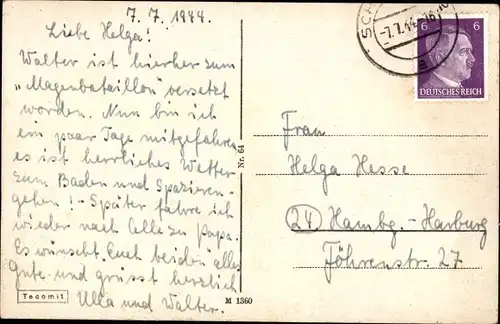 7. 7. 1944.
Liebe Helga!
Walter ist hierher zum
"Magenbataillon" versetzt
worden. Nun bin ich
ein paar Tage mitgefahren
es ist herrliches Wetter
zum Baden und Spazieren-
gehen! - Später fahre ich
wieder nach Celle zu Papa.
Es wünscht Euch beiden alles
Gute und grüsst herzlich
Ulla und Walter.
Tecomit
Nr. 64
M 1360
SCH
-7.7.44-16
a
6 6
DEUTSCHES REICH
Frau
Helga Hesse
24 Hambg.-Harburg
Föhrenstr. 27